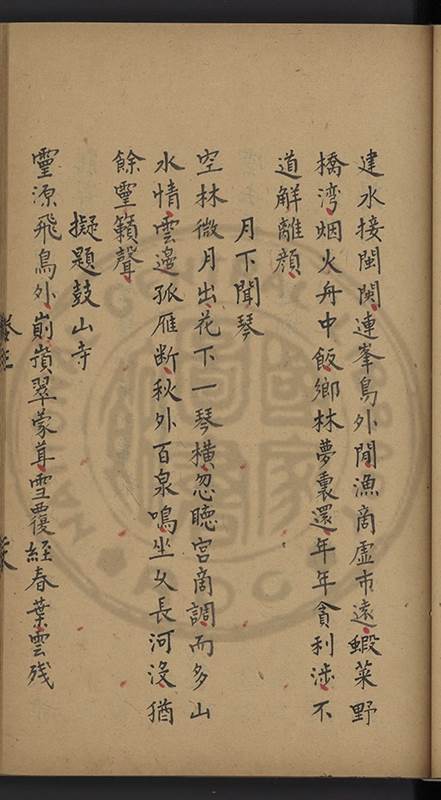 建水接閩関連峯鳥外閒漁商虛市遠蝦菜野
橋湾烟火舟中飯鄉林夢裏還年年貪利涉不
道解離顏
月下聞琴
空林微月出花下一琴横忽聴宮商調而多山
水情雲邊孤雁断秋外百泉鳴坐久長河没猶
餘靈籟聲
擬題鼓山寺
靈源飛鳥外崱嶺翠蒙茸雪覆経春葉雲残